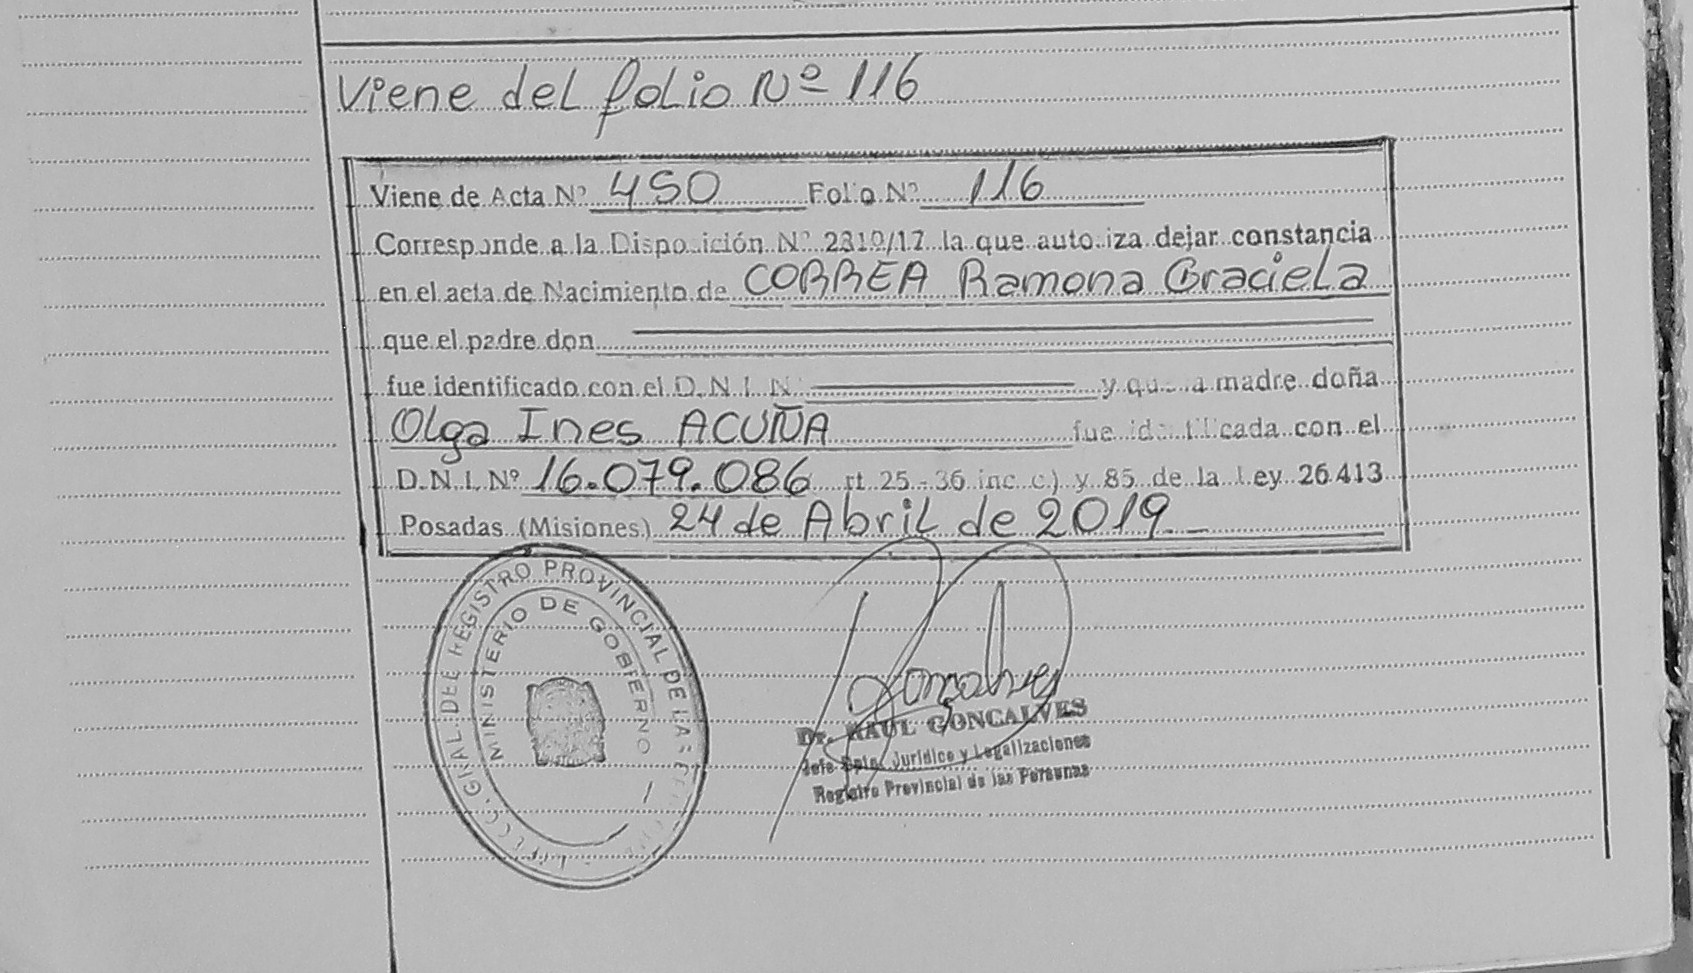 Viene del folio Nº 116
Viene de Acta Nº 450 Folio Nº 116
Corresponde a la Disposición Nº 2310/17 la que autoriza dejar constancia
en el acta de Nacimiento de CORREA Ramona Graciela
que el padre don
fue identificado con el D.N.I. Nº y que la madre doña
Olga Ines ACUÑA fue identificada con el
D.N.I. Nº 16.079.086 rt 25-36 inc c) y 85 de la Ley 26.413
Posadas (Misiones) 24 de Abril de 2019
GRAL. DEL REGISTRO PROVINCIAL DE LAS
MINISTERIO DE GOBIERNO
Goncalves
Dr. RAUL GONCALVES
Jefe Dpto. Jurídico y Legalizaciones
Registro Provincial de las Personas